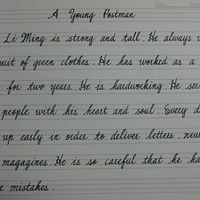 A Young Postman
Li Ming is strong and tall. He always
uit of green clothes. He has worked as a
for two years. He is hardworking. He ser
people with his heart and soul. Every d
up early in order to deliver letters, new
magazines. He is so careful that he ha
e mistakes.